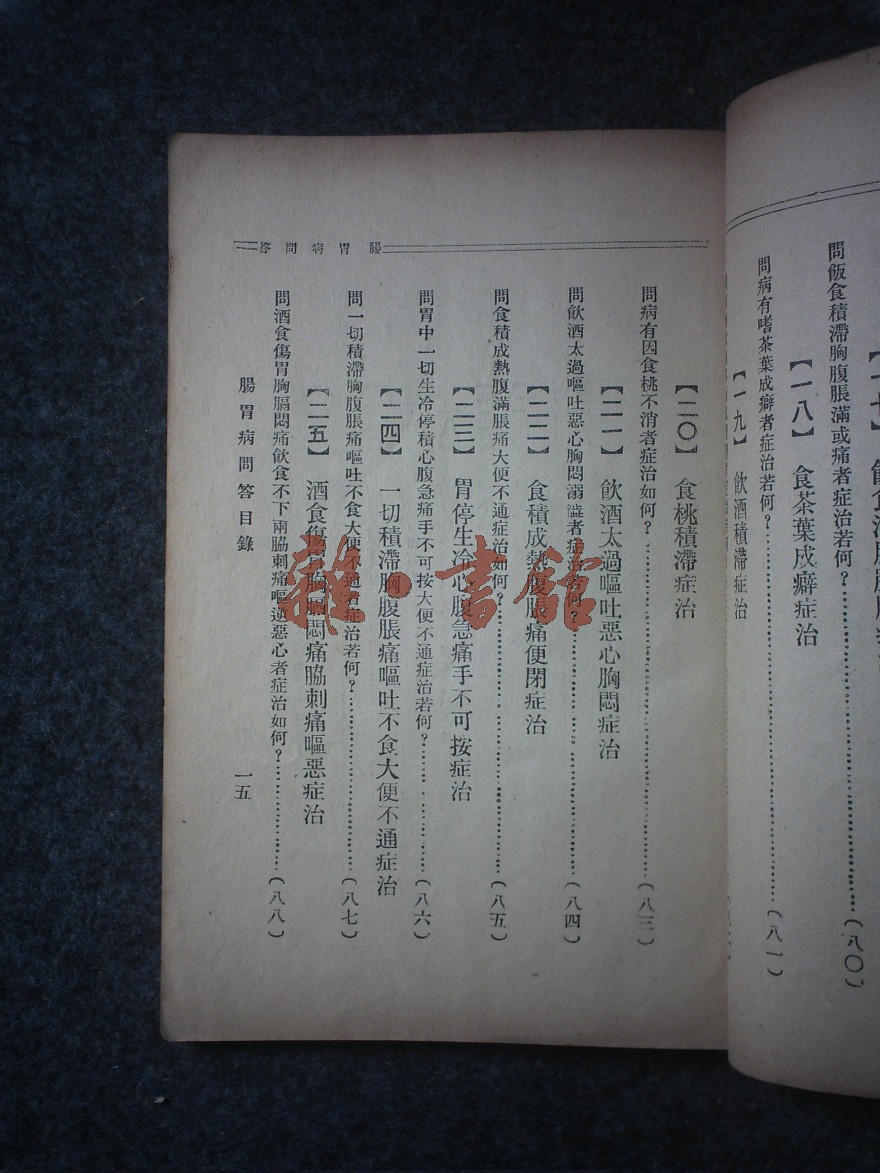 問飯食積滯胸腹脹滿或痛者症治若何？（八〇）
【一八】　食茶葉成癖症治
問病有嗜茶葉成癖者症治若何？（八一）
【一九】　飲酒積滯症治
腸胃病問答
【二〇】　食桃積滯症治
問病有因食桃不消者症治如何？（八三）
【二一】　飲酒太過嘔吐惡心胸悶症治
問飲酒太過嘔吐惡心胸悶溺澁者症治若何？（八四）
【二二】　食積成熱腹脹痛便閉症治
問食積成熱腹滿脹痛大便不通症治如何？（八五）
【二三】　胃停生冷心腹急痛手不可按症治
問胃中一切生冷停積心腹急痛手不可按大便不通症治若何？（八六）
【二四】　一切積滯胸腹脹痛嘔吐不食大便不通症治
問一切積滯胸腹脹痛嘔吐不食大便不通者症治若何？（八七）
【二五】　酒食傷胃胸膈悶痛脇刺痛嘔惡症治
問酒食傷胃胸膈悶痛飲食不下兩脇刺痛嘔逆惡心者症治如何？（八八）
腸胃病問答目錄
一五
雜·書館